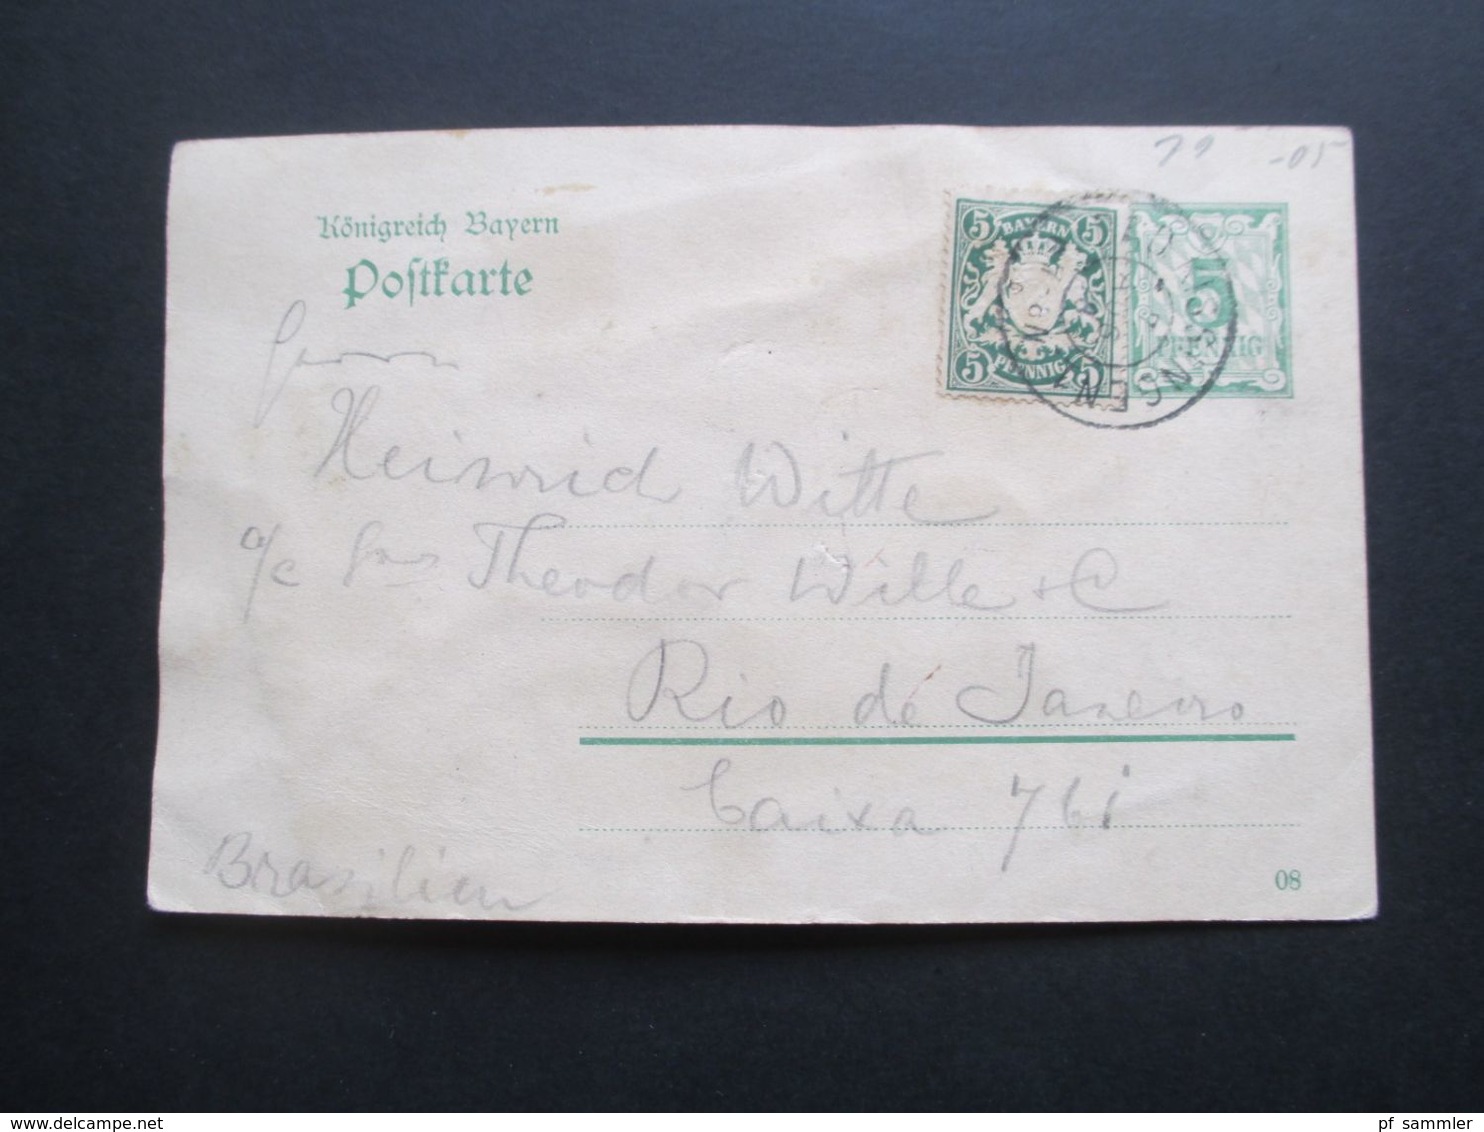 -05
Königreich Bayern
Postkarte
5 BAYERN 5
5 PFENNIG 5
5
PFENNIG
Herrn
Heinrich Witte
a/c Theodor Wille & C
Rio de Janeiro
Caixa 761
Brasilien
08
www.delcampe.net
pf_sammler